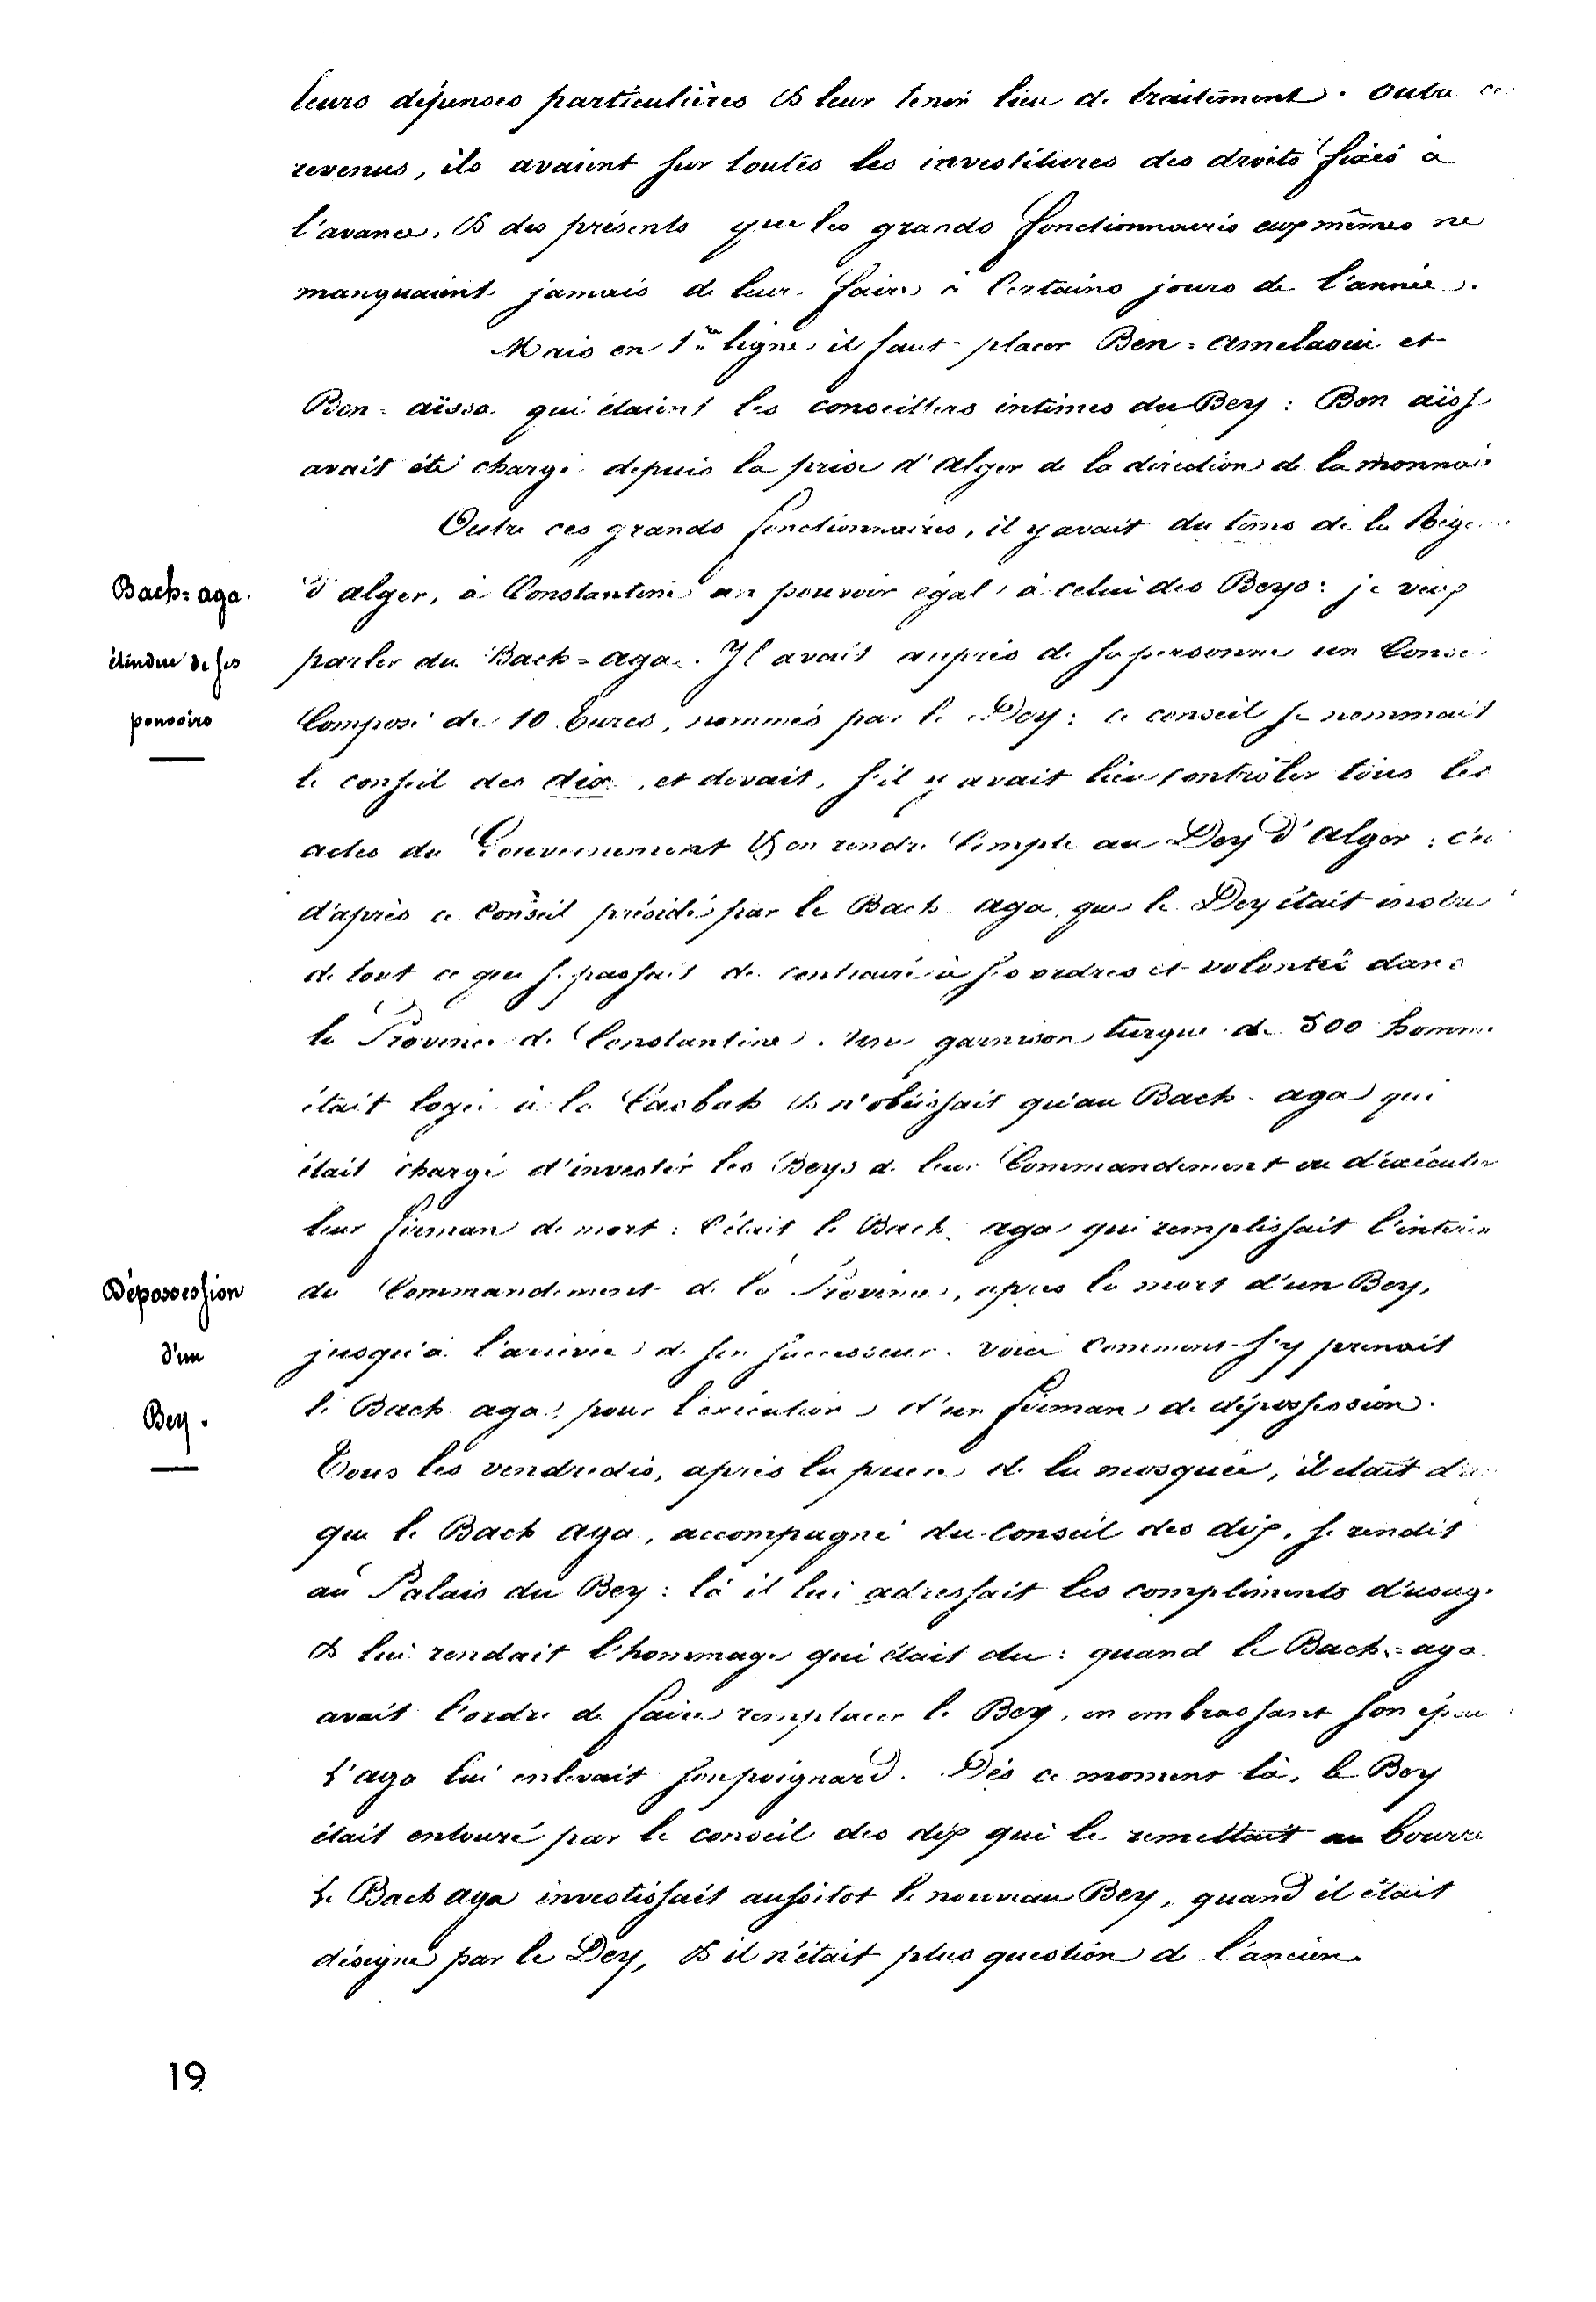 leurs dépenses particulières & leur tenir lieu de traitement. Outre ce
revenus, ils avaient sur toutes les investitures des droits fixés à
l'avance, & des présents que les grands fonctionnaires eux mêmes ne
manquaient jamais de leur faire à certains jours de l'année.
Mais en 1ère ligne il faut placer Ben-amelaoui et
Ben-aïssa qui étaient les conseillers intimes du Bey : Ben aïss
avait été chargé depuis la prise d'alger de la direction de la monnai
Outre ces grands fonctionnaires, il y avait du tems de la Rége
Bach=aga.
étendue de ses
pouvoirs
d'alger, à Constantine un pouvoir égal à celui des Beys : je veux
parler du Bach=aga. Il avait auprès de sa personne un Consei
Composé de 10 Turcs, nommés par le Dey : ce conseil se nommait
le conseil des dix, et devait, s'il y avait lieu contrôler tous les
actes du Gouvernement & en rendre Compte au Dey d'alger : c'es
d'après ce Conseil présidé par le Bach aga que le Dey était instru
de tout ce qui se passait de contraire à ses ordres et volontés dans
la Province de Constantine. Une garnison turque de 500 homme
était logée à la Casbah & n'obéissait qu'au Bach-aga qui
était chargé d'investir les Beys de leur Commandement ou d'exécuter
leur firman de mort : C'était le Bach-aga qui remplissait l'interim
Dépossession
d'un
Bey.
du Commandement de la Province, après la mort d'un Bey,
jusqu'à l'arrivée de son successeur. Voici Comment s'y prenait
le Bach aga, pour l'exécution d'un firman de dépossession.
Tous les vendredis, après la prière de la mosquée, il était d'u
que le Bach aga, accompagné du conseil des dix, se rendit
au Palais du Bey : là il lui adressait les compliments d'usage
& lui rendait l'hommage qui était du : quand le Bach=aga
avait l'ordre de faire remplacer le Bey, en embrassant son épau
l'aga lui enlevait son poignard. Dès ce moment là, le Bey
était entouré par le conseil des dix qui le remettait au bourre
le Bach aga investissait aussitot le nouveau Bey, quand il était
désigné par le Dey, & il n'était plus question de l'ancien.
19